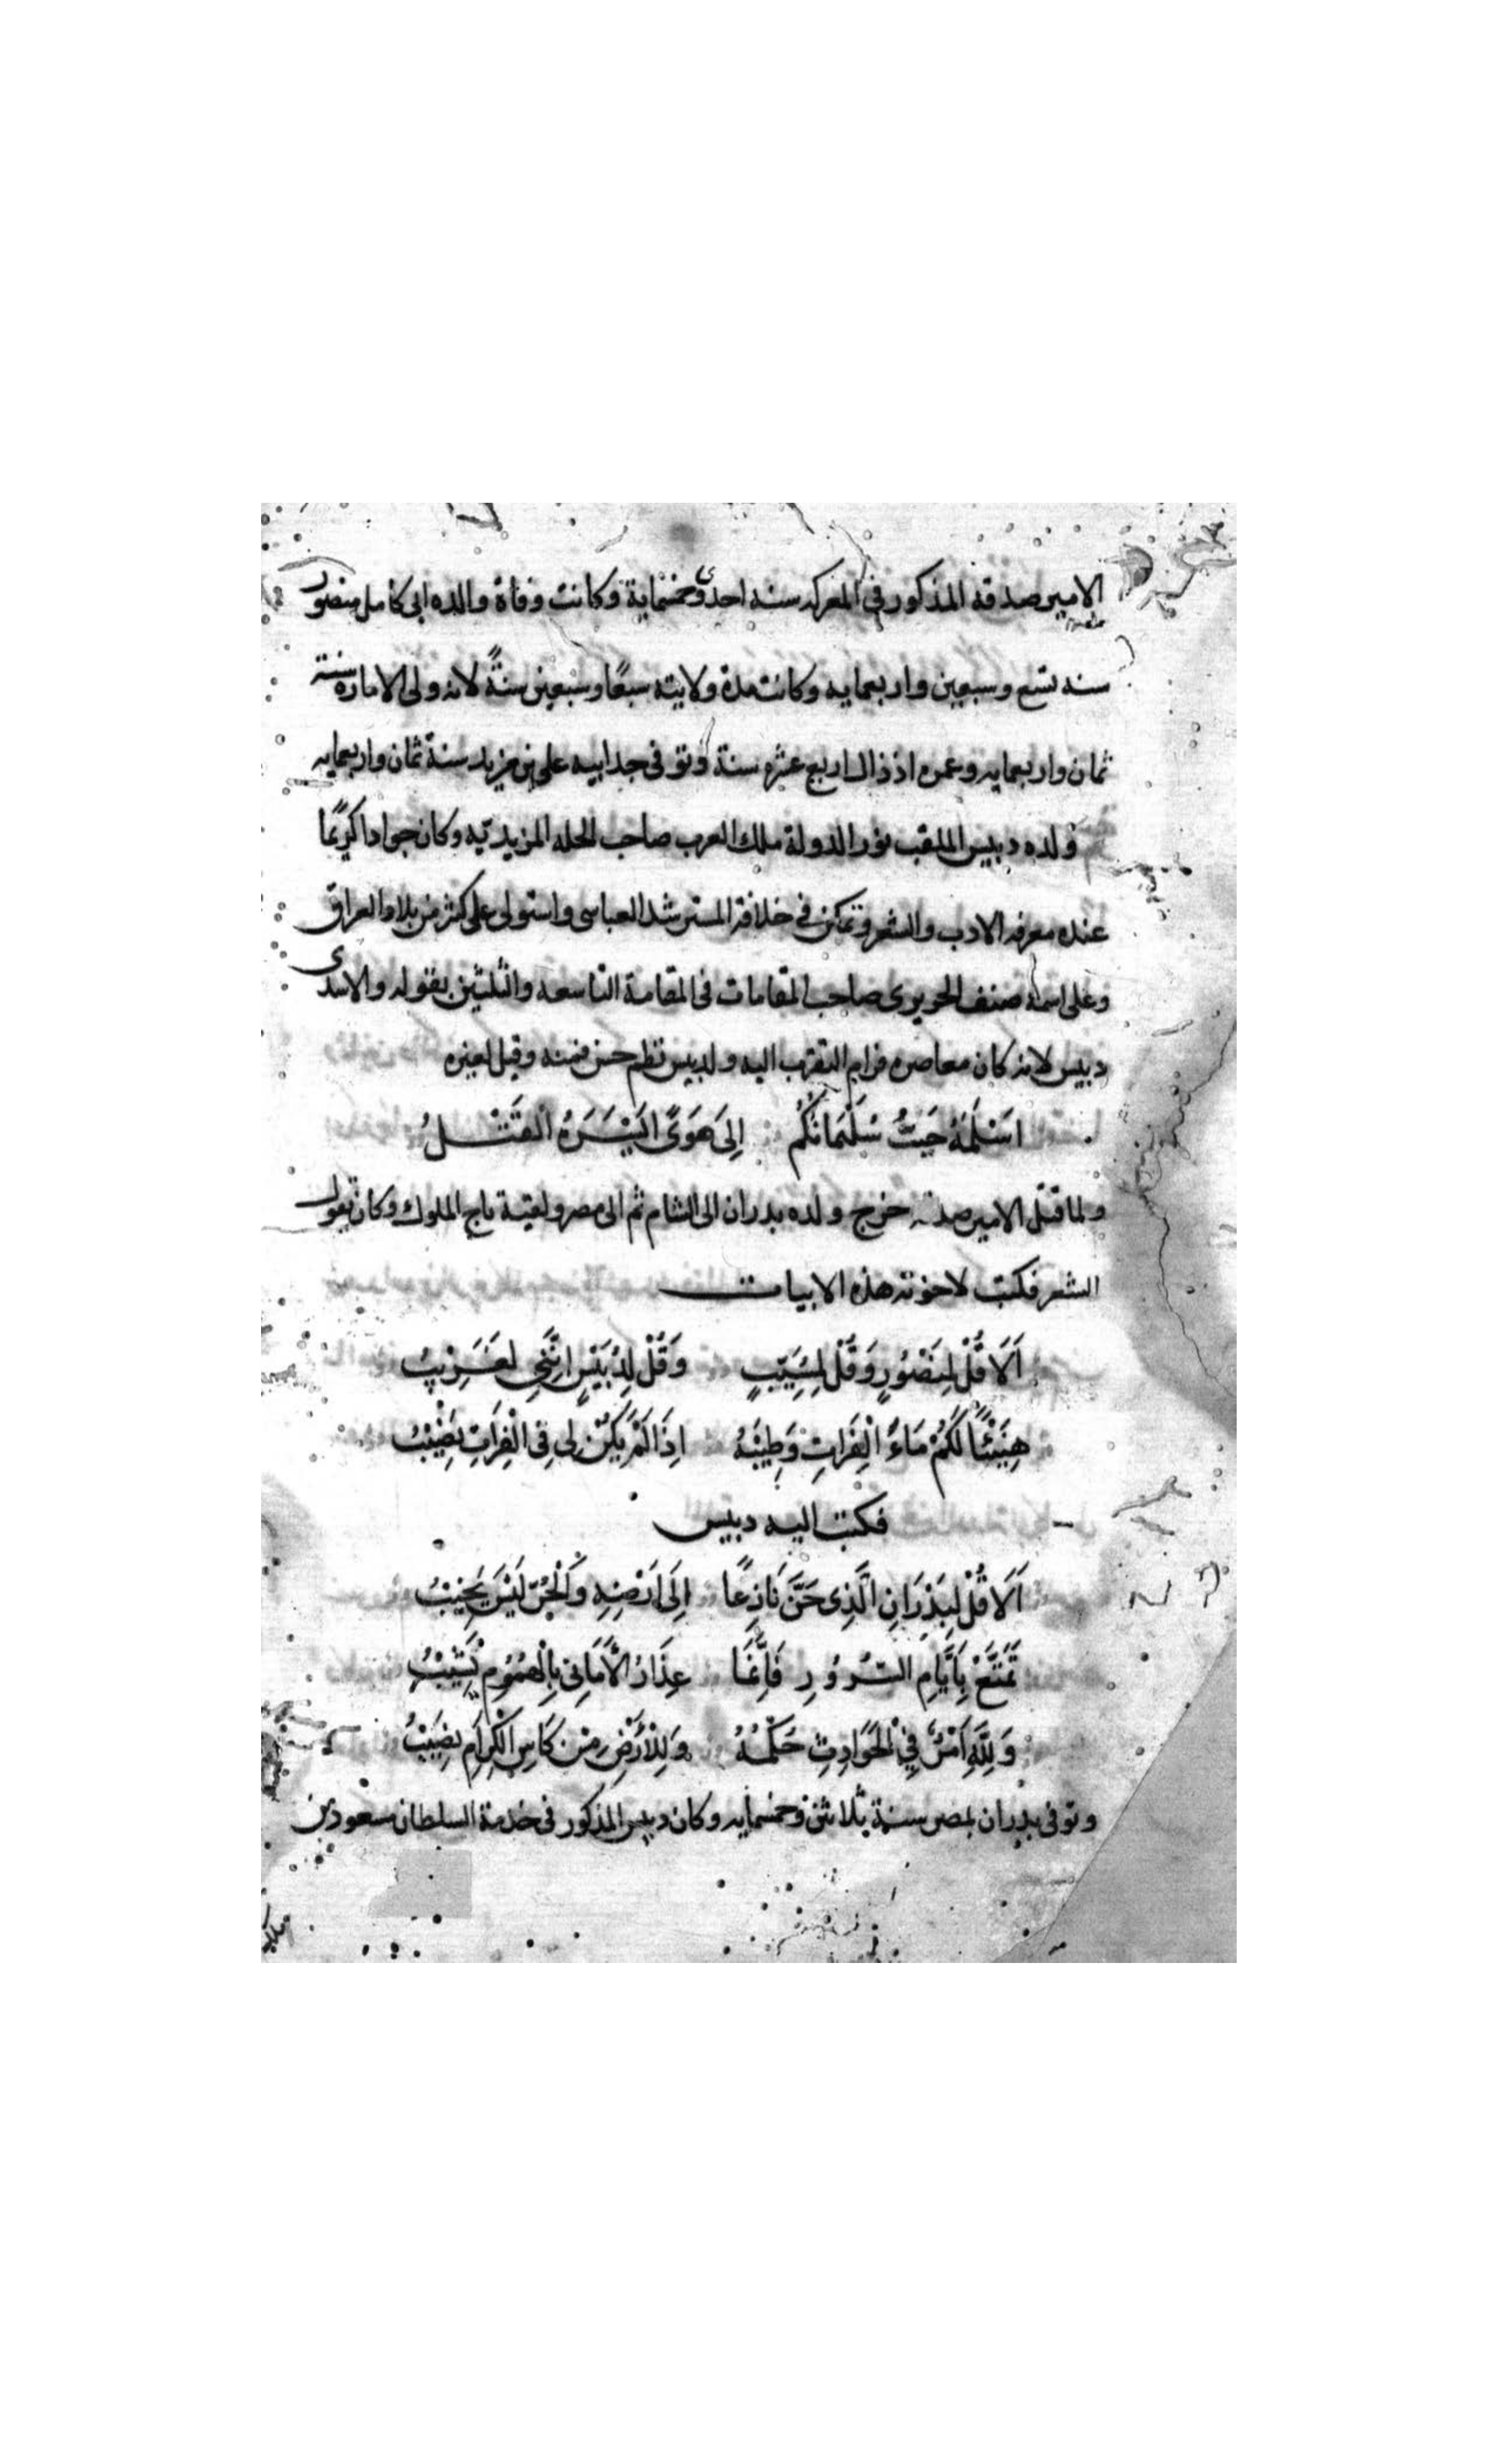 الامير صدقة المذكور في المعركه سنه احدى وخمسماية وكانت وفاة والده ابى كامل منصور
سنه تسع وسبعين واربعمايه وكانت مدة ولايته سبعًا وسبعين سنةً لانه ولى الامارة سنة
ثمان واربعمايه وعمره اذ ذاك اربع عشره سنة وتوفى جد ابيه على بن مزيد سنة ثمان واربعمايه
ولده دبيس الملقب نور الدولة ملك العرب صاحب الحله المزيديّيه وكان جوادا كريمًا
عنده معرفه الادب والشعر وتمكن في خلافة المسترشد العباسى واستولى على كثير من بلاد العراق
وعلى اسمه صنف الحريرى صاحب المقامات فى المقامة التاسعه والثلثين بقوله والاسدى
دبيس لانه كان معاصره فرام التقرب اليه ولدبيس نظم حسن فمنه وقيل لغيره
اسْلَمَهُ حُبُّ سُلَيْمَانُكُمْ إِلَى هَوًى اَيْسَرُهُ القَتْلُ
ولما قتل الامير صدقه خرج ولده بدران الى الشام ثم الى مصر ولقبة تاج الملوك وكان يقول
الشعر فكتب لاخوته هذه الابيات
اَلَا قُلْ لِمَنْصُورٍ وَقُلْ لِمُسَيَّبٍ وَقُلْ لِدُبَيْسٍ اِنَّنِي لَغَرِيْبُ
هَنِيْئًا لَكُمْ مَاءُ الْفِرَاتِ وَطِيْبُهُ اِذَا لَمْ يَكُنْ لِى فِى الْفِرَاتِ نَصِيْبُ
فكتب اليه دبيس
اَلَا قُلْ لِبَدْرَانِ الَّذِى حَنَّ نَازِعًا إِلَى اَرْضِهِ وَالْحُرُّ لَيْسَ يَخِيْبُ
تَمَتَّعْ بِاَيَّامِ السُّرُوْرِ فَاِنَّمَا عِذَارُ الْأَمَانِى بِالْهُمُوْمِ يَشِيْبُ
وَلِلَّهِ اَمْرٌ فِي الْحَوَادِثِ حُكْمُهُ وَلِلْأَرْضِ مِنْ كَاسِ الْكِرَامِ نَصِيْبُ
وتوفى بدران بمصر سنة ثلاثين وخمسمايه وكان دبيس المذكور فى خدمة السلطان مسعود بن